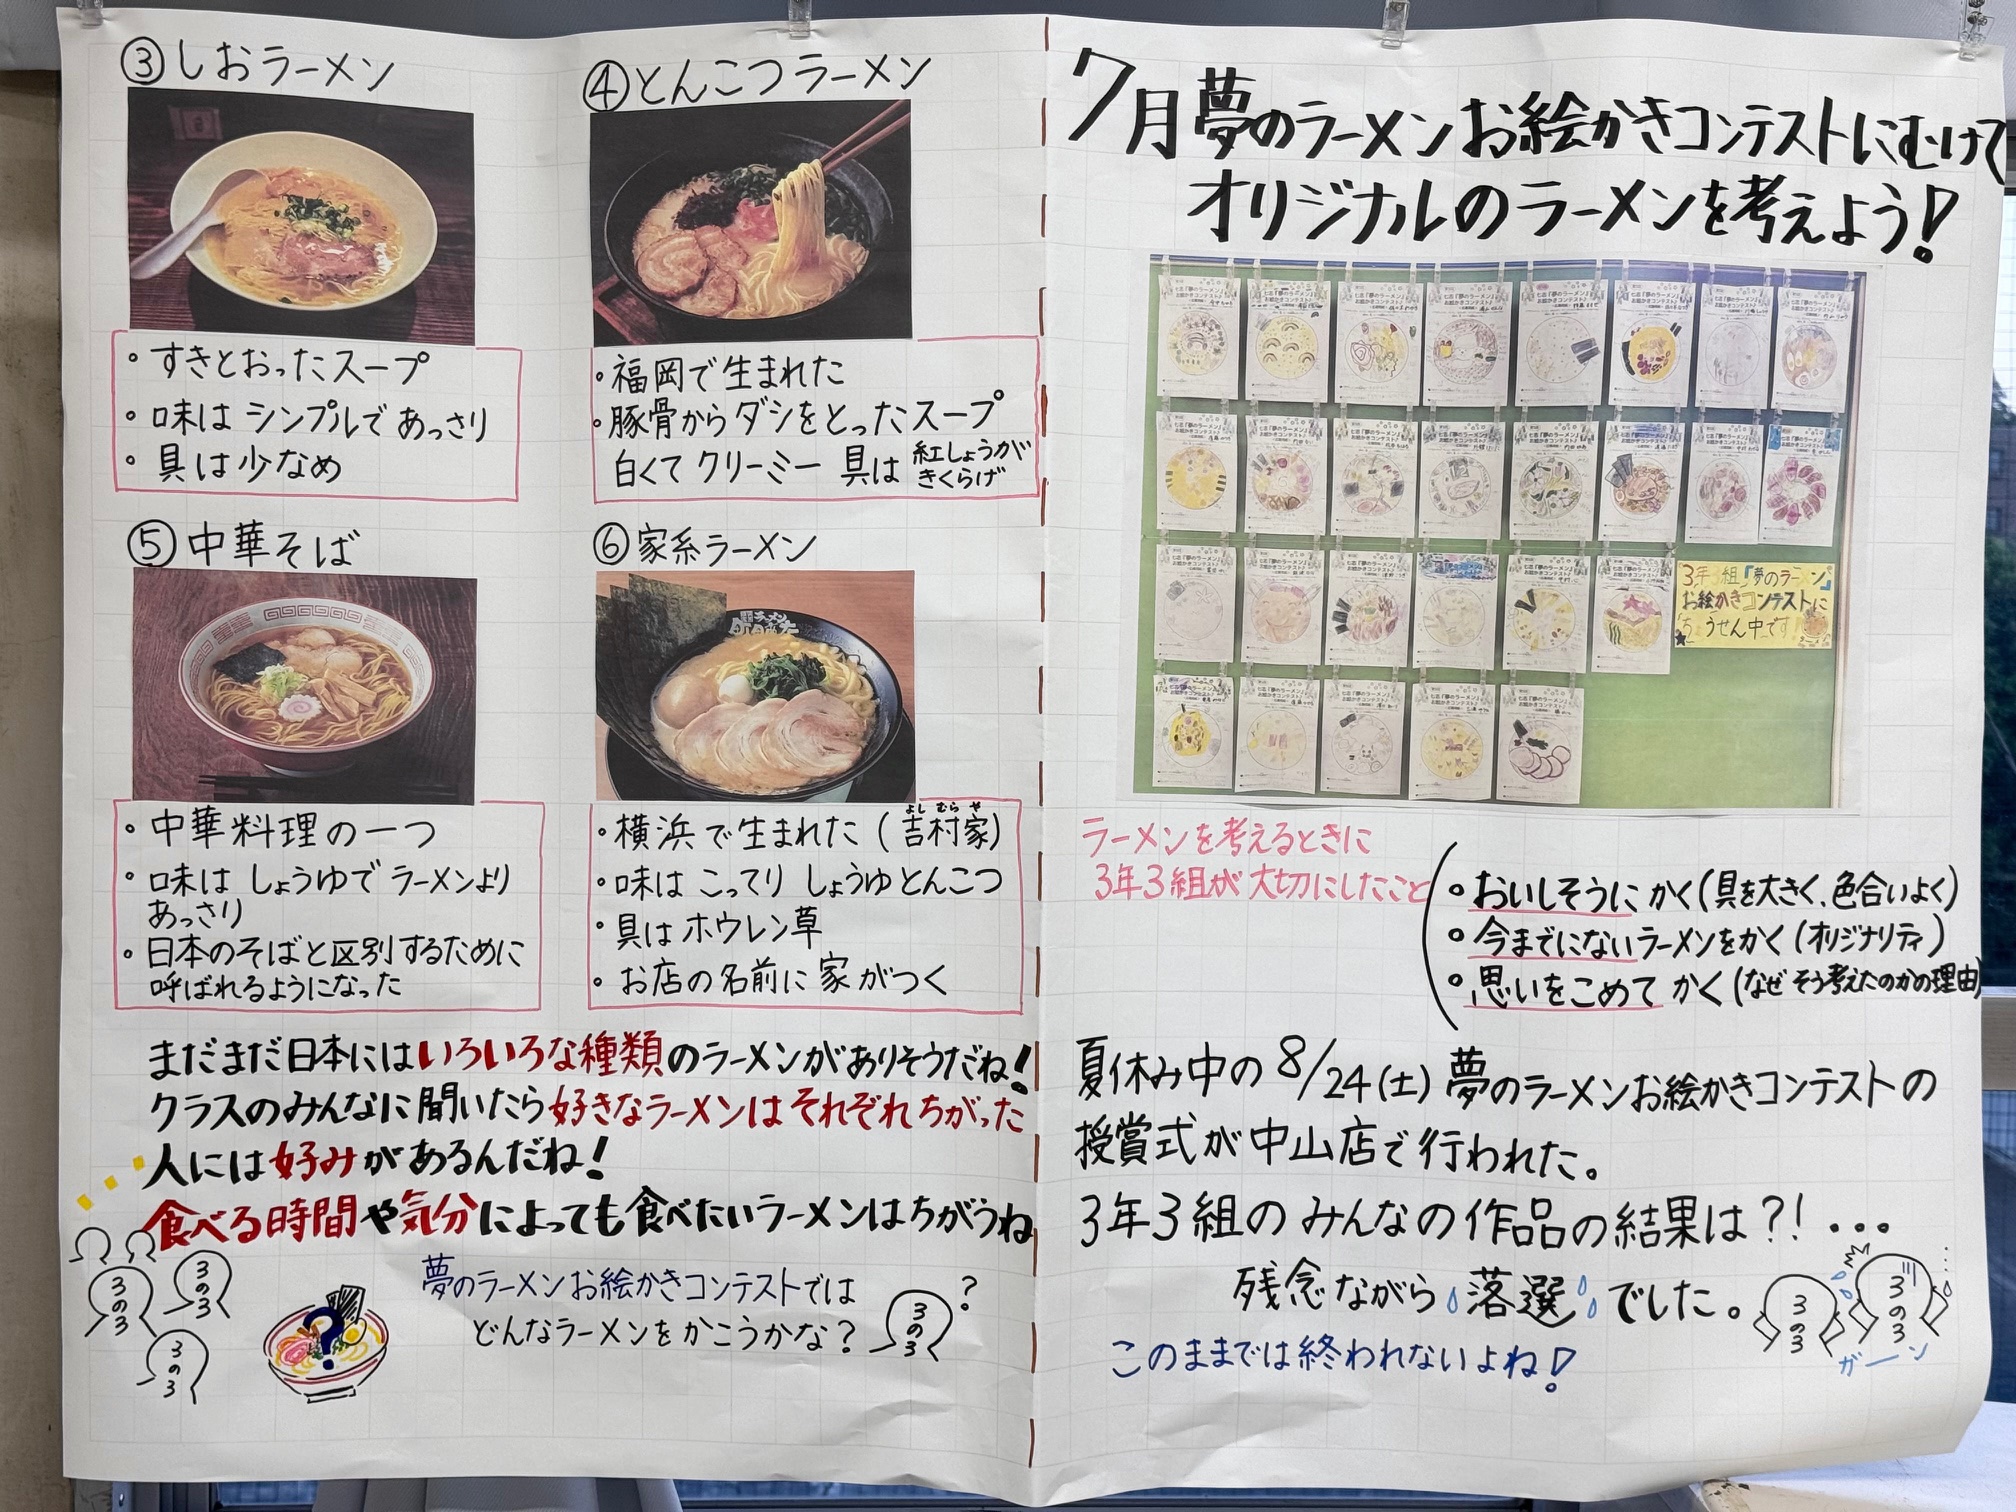 ③しおラーメン
・すきとおったスープ
・味は シンプルで あっさり
・具は少なめ
④とんこつラーメン
・福岡で生まれた
・豚骨からダシをとったスープ
白くてクリーミー 具は 紅しょうが
きくらげ
⑤中華そば
・中華料理の一つ
・味は しょうゆで ラーメンより
あっさり
・日本のそばと区別するために
呼ばれるようになった
⑥家系ラーメン
・横浜で生まれた(吉村家)
よし むら や
・味は こってり しょうゆとんこつ
・具は ホウレン草
・お店の名前に 家 がつく
まだまだ日本にはいろいろな種類のラーメンがありそうだね!
クラスのみんなに聞いたら好きなラーメンはそれぞれちがった
人には好みがあるんだね!
食べる時間や気分によっても食べたいラーメンはちがうね
3の3
3の3
3の3
?
夢のラーメンお絵かきコンテストでは
どんなラーメンをかこうかな?
3の3
?
7月夢のラーメンお絵かきコンテストにむけて
オリジナルのラーメンを考えよう!
3年3組『夢のラーメン』
お絵かきコンテストに
ちょうせん中です!
ラーメンを考えるときに
3年3組が大切にしたこと
・おいしそうに かく(具を大きく、色合いよく)
・今までにないラーメンをかく(オリジナリティ)
・思いをこめて かく(なぜ そう考えたのかの理由)
夏休み中の 8/24(土) 夢のラーメンお絵かきコンテストの
授賞式が中山店で行われた。
3年3組の みんなの作品の結果は?!...
残念ながら 落選 でした。
このままでは終われないよね!
3の3
3の3
ガーン